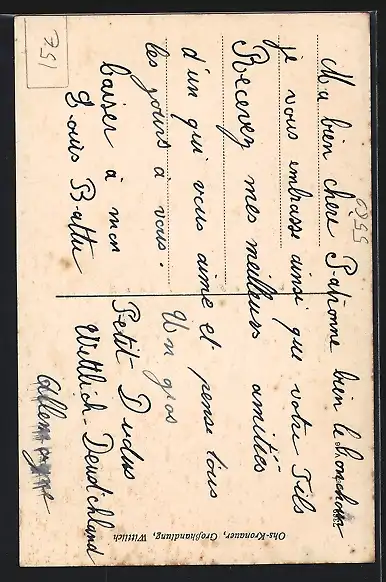 Ma bien chère Patronne bien le bonchour
je vous embrasse ainsi que votre Fils
Recevez mes meilleurs amitiés
d'un qui vous aime et pense tous
les jours à vous. Un gros
baiser à mon Petit Dudus
Louis Battu Wittlich-Deudichland
Allemagne
157
5695
Ohs-Kronauer, Großhandlung, Wittlich